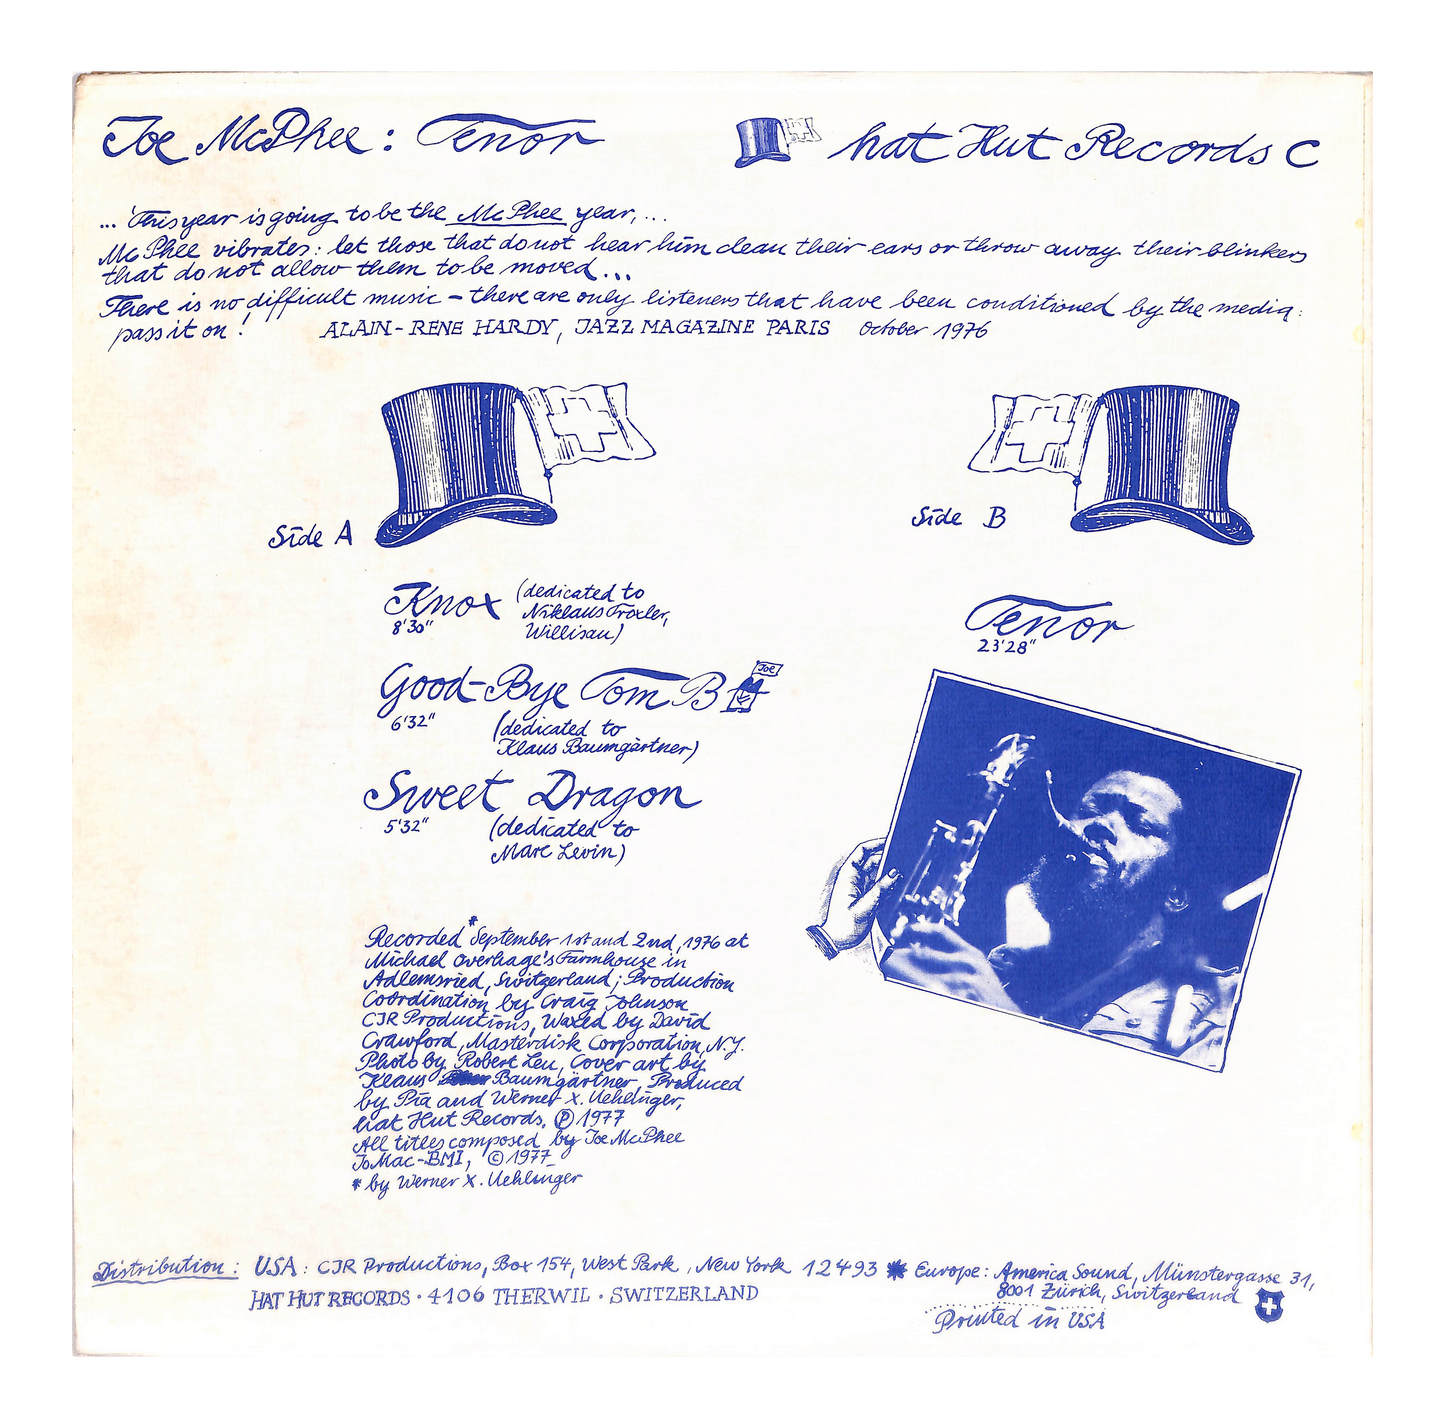 Joe McPhee: Tenor
hat Hut Records C
... 'This year is going to be the McPhee year,...
McPhee vibrates: let those that do not hear him clean their ears or throw away their blinkers
that do not allow them to be moved...
There is no difficult music – there are only listeners that have been conditioned by the media:
pass it on! ALAIN-RENE HARDY, JAZZ MAGAZINE PARIS October 1976
Side A
Knox (dedicated to
8'30" Niklaus Troxler,
Willisau)
Good-Bye Tom B
Joe
6'32" (dedicated to
Klaus Baumgärtner)
Sweet Dragon
5'32" (dedicated to
Marc Levin)
Recorded * September 1st and 2nd, 1976 at
Michael Overhage's Farmhouse in
Adlemsried, Switzerland; Production
Coordination by Craig Johnson
CJR Productions, Waxed by David
Crawford, Masterdisk Corporation, N.Y.
Photo by Robert Leu, Cover art by
Klaus Baumgärtner, Produced
by Pia and Werner X. Uehlinger,
hat Hut Records. Ⓟ 1977
All titles composed by Joe McPhee
JoMac-BMI, © 1977
* by Werner X. Uehlinger
Side B
Tenor
23'28"
Distribution: USA: CJR Productions, Box 154, West Park, New York 12493 * Europe: America Sound, Münstergasse 31,
8001 Zürich, Switzerland
HAT HUT RECORDS · 4106 THERWIL · SWITZERLAND
Printed in USA